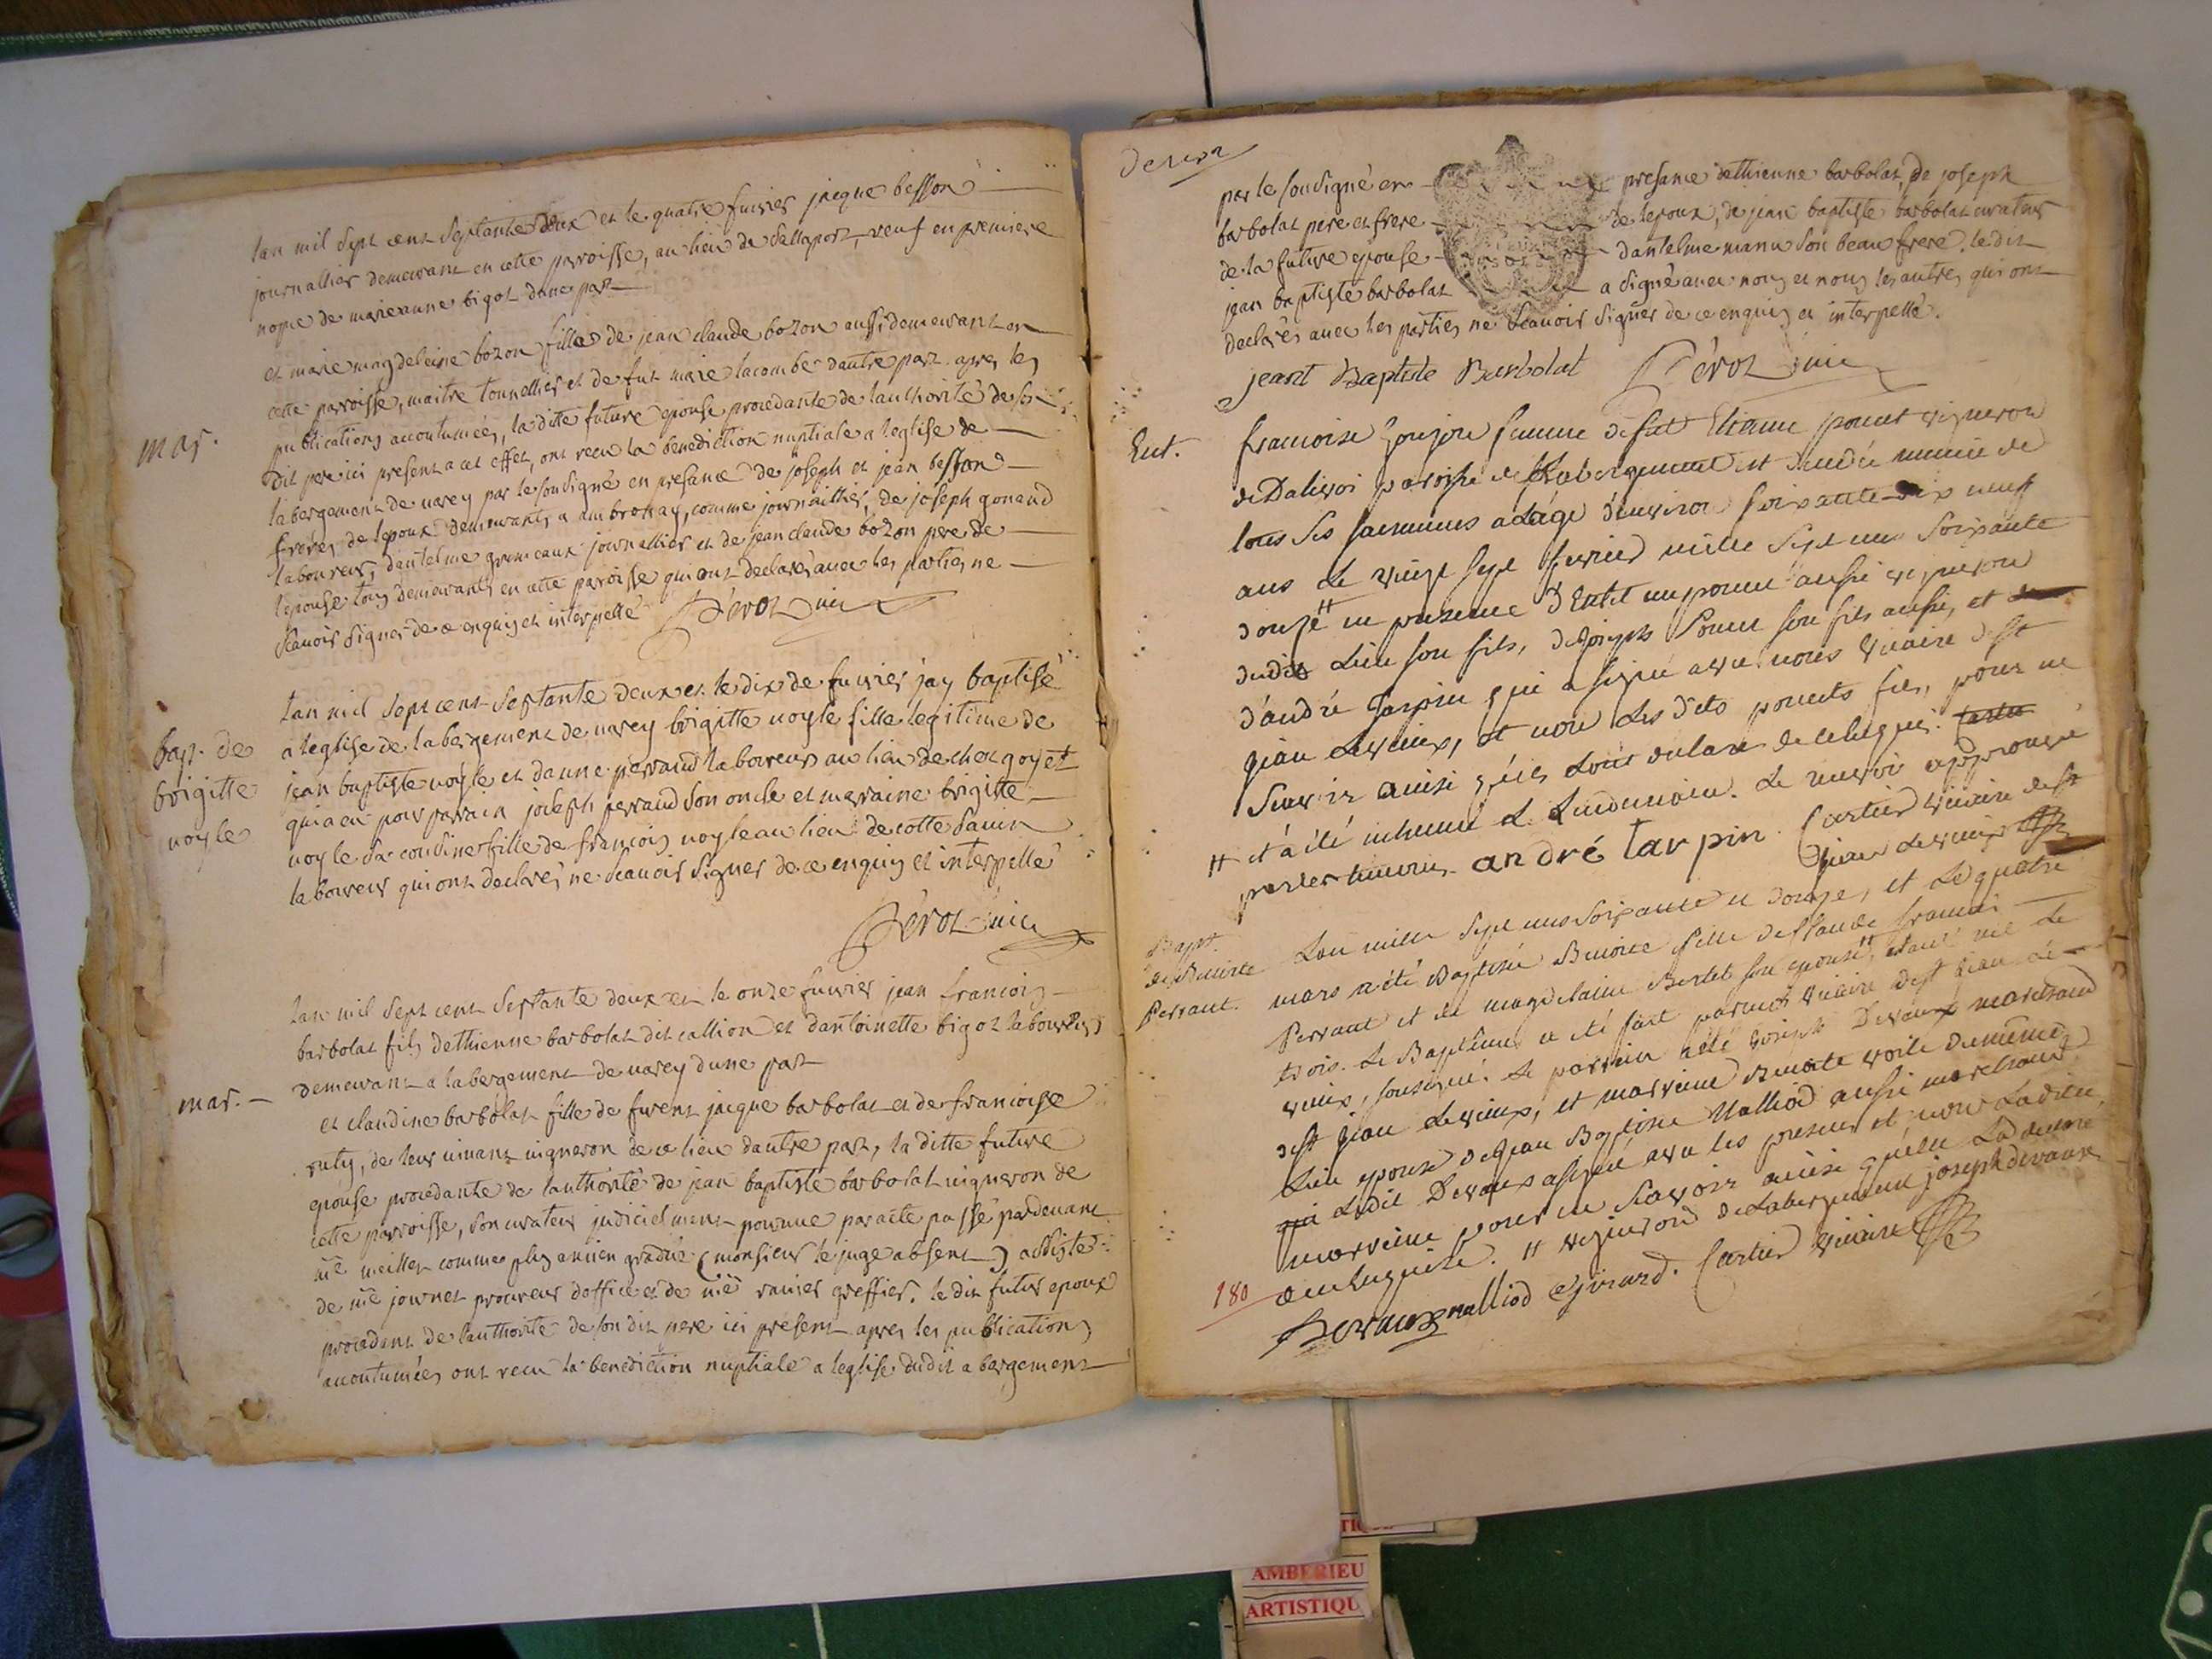 mar.
lan mil sept cent septante deux et le quatre fuvrier jacque besson
journallier demeurant en cette parroisse, au lieu de dallaport, veuf en premiere
nopce de marieanne bigot dune part
et marie magdeleine bozon fille de jean claude bozon aussi demeurant en
cette parroisse, maitre tonnellier et de fut marie lacombe dautre part. apres les
publications acoutumées, la ditte future epouse procedante de lauthorité de son
dit pere ici present a cet effet, ont recu la benediction nuptiale a leglise de
labergement de varey par le soussigné en presance de joseph et jean besson
freres de lepoux demeurants a ambronay, comme journallier, de joseph gonand
laboureur, dantelme grumeaux journallier et de jean claude bozon pere de
lepouse tous demeurants en cette paroisse qui ont declarés avec les parties ne
scauoir signer de ce enquis et interpellé Pérot vic
bap. de
brigitte
noyle
lan mil sept cent septante deux et le dix de fuvrier jay baptisé
a leglise de labergement de varey brigitte noyle fille legitime de
jean baptiste noyle et danne perraud laboureurs au lieu de chez goyet
qui a eu pour parrain joseph perraud son oncle et marraine brigitte
noyle sa cousine fille de francois noyle au lieu de cotte savin
laboureur qui ont declarés ne scauoir signer de ce enquis et interpellé
Pérot vic
mar.
lan mil sept cent septante deux et le onze fuvrier jean francois
barbolat fils dethienne barbolat dit callion et dantoinette bigot laboureurs
demeurant a labergement de varey dune part
et claudine barbolat fille de furent jacque barbolat et de francoise
ruty, de leur vivant vigneron de ce lieu dautre part, la ditte future
epouse procedante de lauthorité de jean baptiste barbolat vigneron de
cette parroisse, son curateur judicielment pourvue par acte passé pardevant
me meiller comme plus ancien gradué (monsieur le juge absent) assisté
de me journet procureur doffice et de me ranier greffier. le dit futur epoux
procedant de lauthorité de son dit pere ici present apres les publications
acoutumées ont recu la benediction nuptiale a leglise dudit abergement
par le soussigné en presance dethienne barbolat, de joseph
barbolat pere et frere de lepoux, de jean baptiste barbolat curateur
de la future epouse dantelme manu son beau frere. le dit
jean baptiste barbolat a signé avec nous et nous les autres qui ont
declarés avec les parties ne scauoir signer de ce enquis et interpellé.
jeant Baptiste Barbolat Pérot vic
Ent.
francoise femme de fut Etienne ponut vigneron
de Dalivoi paroisse de Labergement est decedée munie de
tous ses sacremens a lâge d'environ soixante dix neuf
ans le vingt sept fevrier mille sept cens soixante
douze # en presence d'Ente ponut aussi vigneron
dudit lieu son fils, de Joseph Ponut son fils aussi, et
d'andré Tarpin qui a signé avec nous vicaire dest
jean levieux, et non les dits ponuts fils, pour ne
scavoir ainsi qu'ils l'ont declaré de ce enquis.
# et a été inhumé le lendemain. le renvoi approuvé
andré tarpin. Cartier vicaire dest
jean levieux
Bapt.
de Benoite
Perraut.
Lan mille sept cens soixante et douze, et le quatre
mars a été Baptisée Benoite fille de claude francois
Perraut et de magdelaine Bertet son epouse #, étant née le
trois. Le Baptême a été fait par moi vicaire dest jean le
vieux, soussigné. Le parrain a été Joseph Devaux marchand
dest jean levieux, et marraine Benoite voile du même
lieu epouse de jean Baptiste Malliod aussi marchand
qui ledit Devaux a signé avec les presens et non Ladite
marraine pour ne scavoir ainsi qu'elle La declaré
de ce enquise. # vigneron de Labergement joseph devaux
180
Devaux malliod Cartier vicaire
AMBERIEU
ARTISTIQU